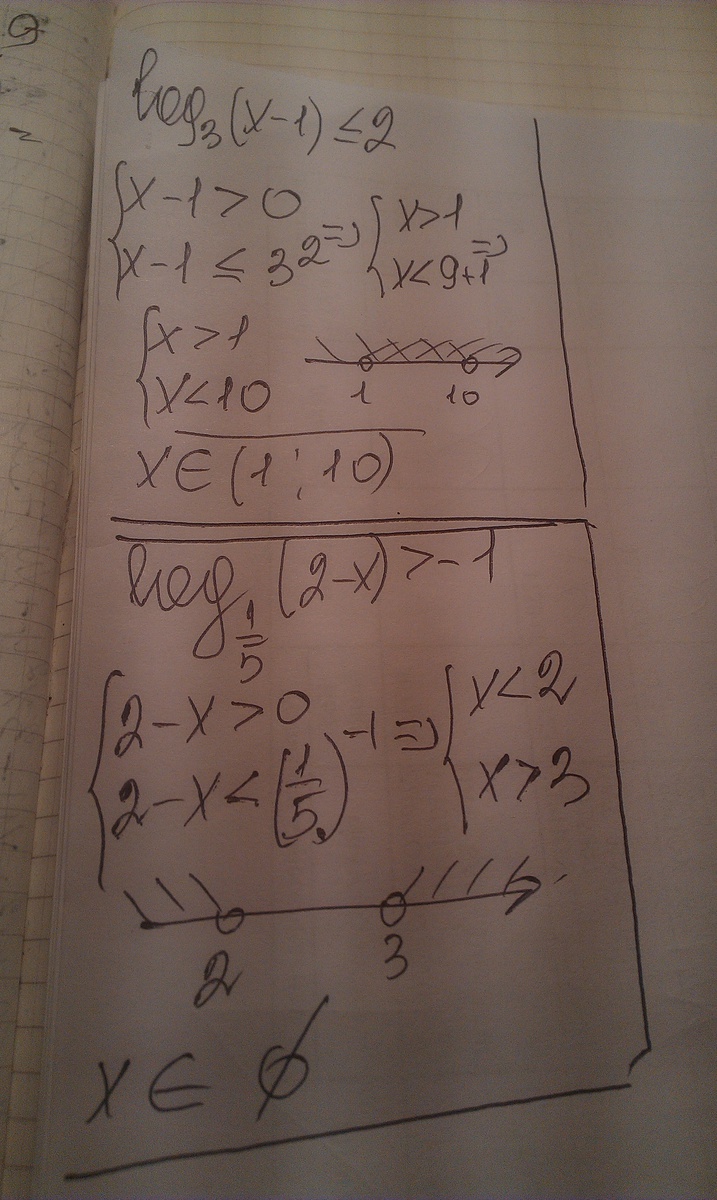 log₃(x-1) ≤ 2
{x-1>0
{x-1 ≤ 3² => {x>1
{x<9+1 =>
{x>1
{x<10
1 10
x∈(1;10)
log_{1/5}(2-x) > -1
{2-x>0
{2-x<(1/5)^{-1} => {x<2
{x>3
2 3
x∈∅